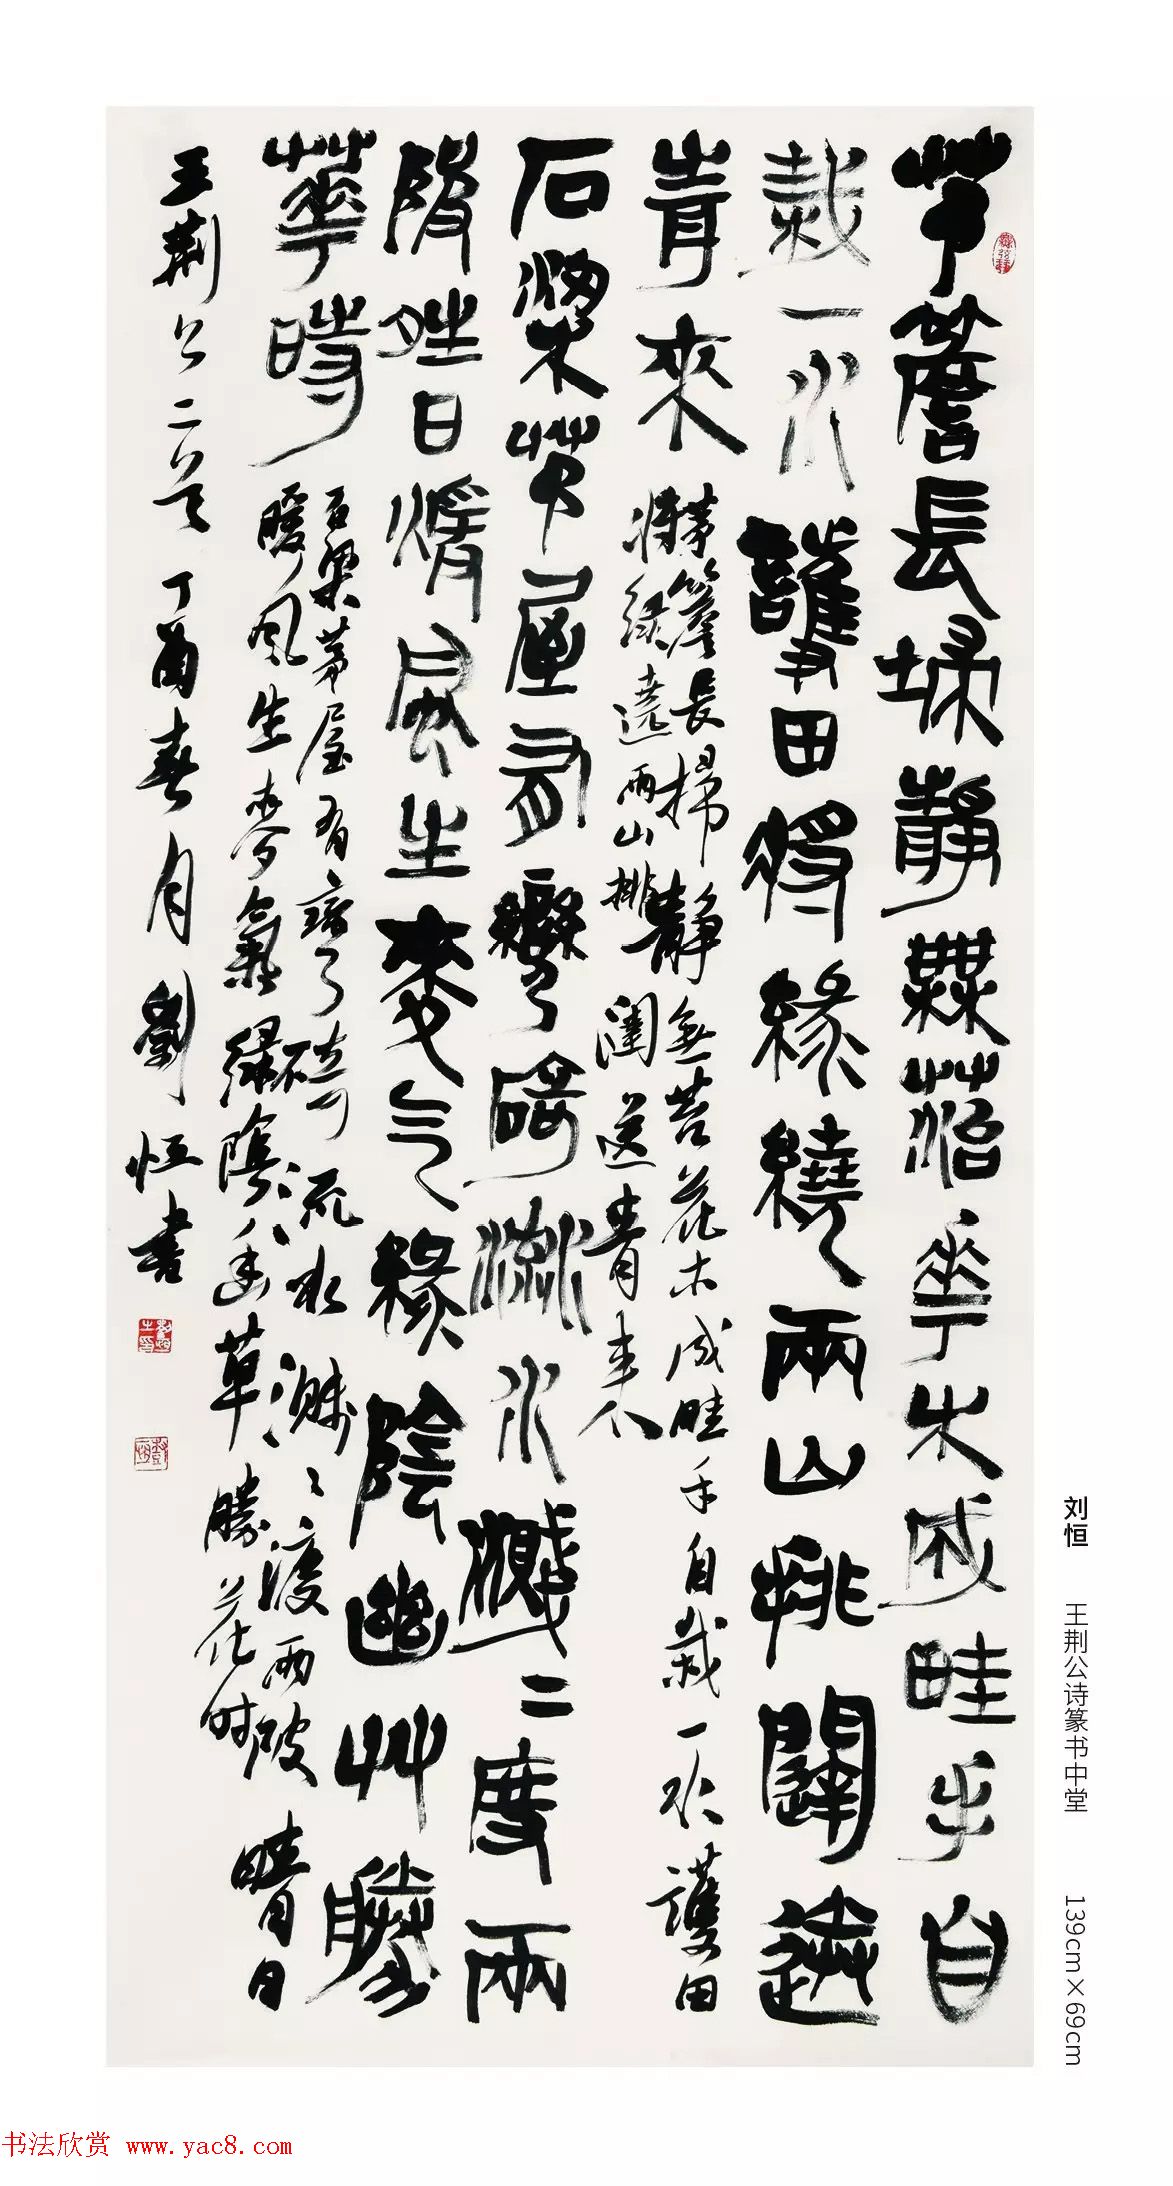 茅簷長埽靜無苔華木成畦手自
栽一水護田將綠繞兩山排闥送
青來
茅簷長掃靜無苔花木成畦手自栽一水護田
將綠遶兩山排闥送青來
石梁茅屋有彎碕流水濺二度兩
陂晴日暖風生麥气綠陰幽艸勝
華時
石梁茅屋有彎碕流水濺〻渡兩陂晴日
暖風生麥氣綠陰幽草勝花時
王荆公二首 丁酉春月劉恒書
刘恒 王荆公诗篆书中堂 139cm×69cm
书法欣赏 www.yac8.com